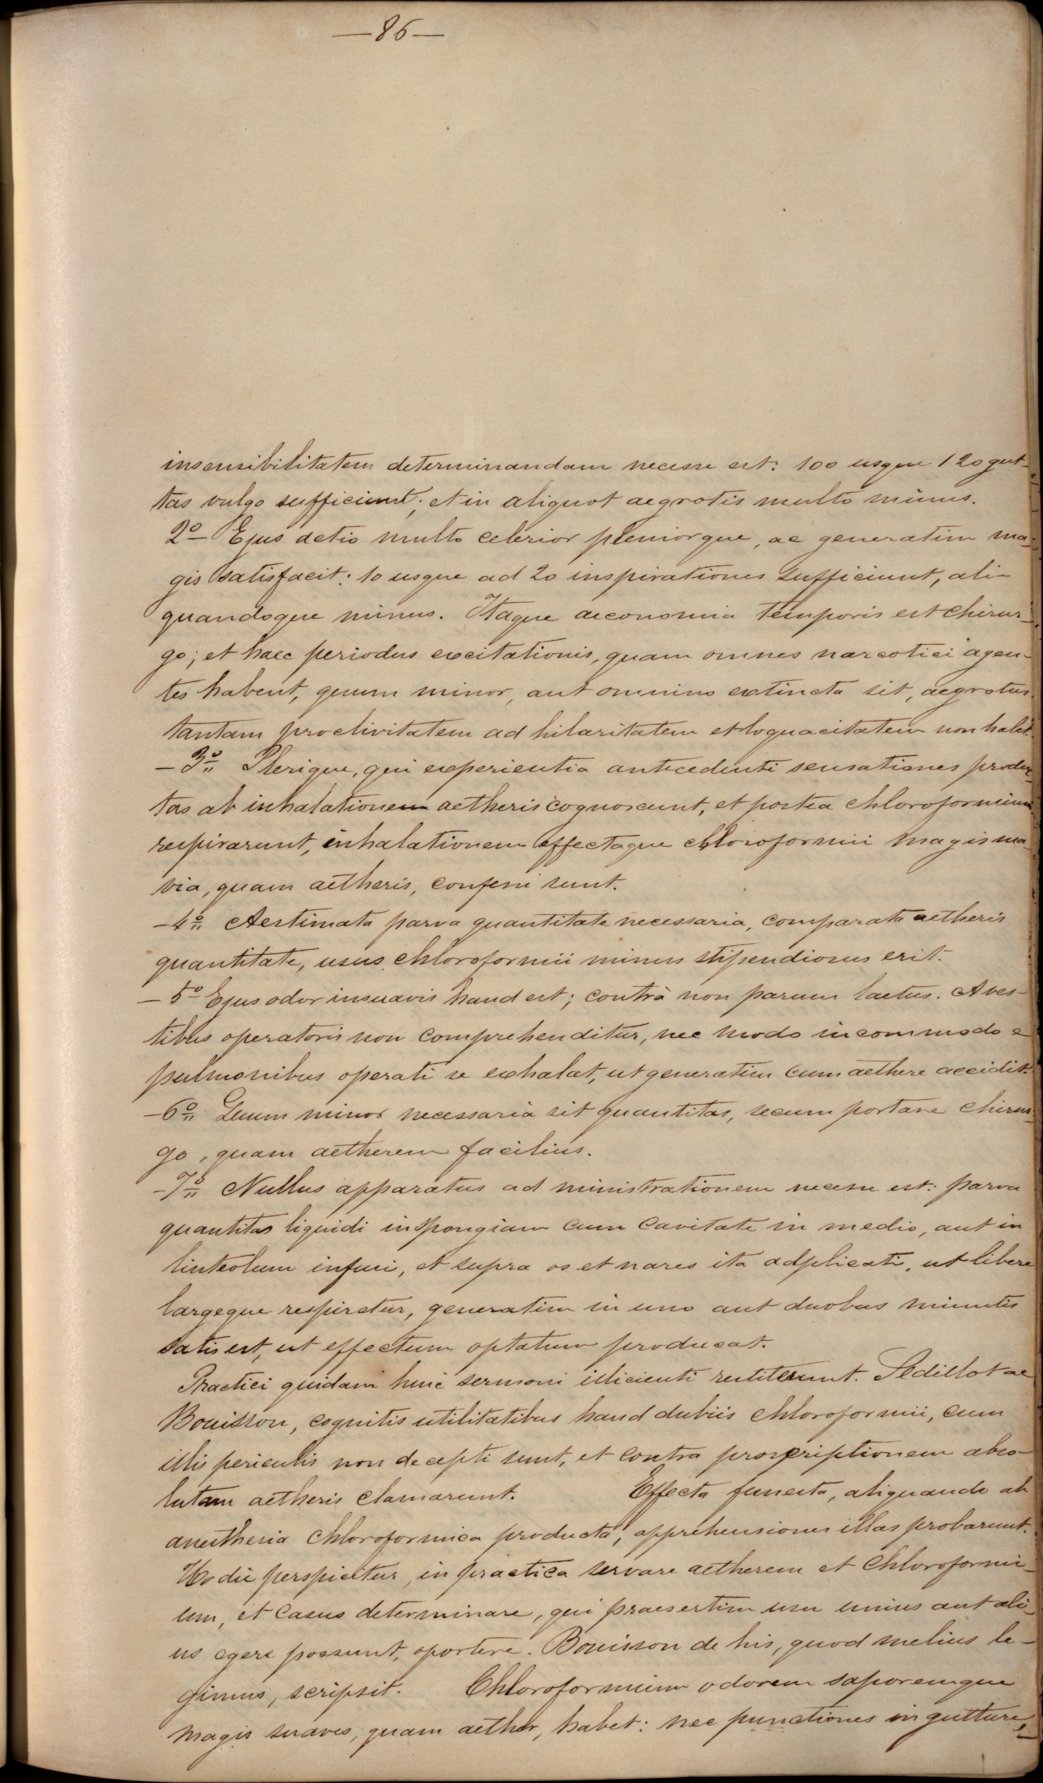 —86—
insensibilitatem determinandam necesse est: 100 usque 120 gut-
tas vulgo sufficiunt; et in aliquot aegrotis multo minus.
2º– Ejus actio multo celerior pleniorque, ac generatim ma-
gis satisfacit: 10 usque ad 20 inspirationes sufficiunt, ali-
quandoque minus. Itaque aeconomia temporis est chirur-
go; et haec periodus excitationis, quam omnes narcotici agen-
tes habent, quum minor, aut omnino extincta sit, aegrotus
tantam proclivitatem ad hilaritatem et loquacitatem non habet.
–3º Plerique, qui experientia antecedenti sensationes produc-
tas ab inhalatione aetheris cognoscunt, et postea chloroformium
respirarunt, inhalationem effectaque chloroformii magis sua
via, quam aetheris, confessi sunt.
–4º Aestimata parva quantitate necessaria, comparata aetheris
quantitate, usus chloroformii minus stipendiosus erit.
–5º Ejus odor insuavis haud est; contrà non parum laetus. A ves-
tibus operatoris non comprehenditur, nec modo incommodo e
pulmonibus operati se exhalat, ut generatim cum aethere accidit.
–6º Quum minor necessaria sit quantitas, secum portare chirur-
go, quam aetherem facilius.
–7º Nullus apparatus ad ministrationem necesse est: parva
quantitas liquidi in spongiam cum cavitate in medio, aut in
linteolum infusi, et supra os et nares ita adplicati, ut libere
largeque respiretur, generatim in uno aut duobus minutis
satis est, ut effectum optatum producat.
Practici quidam huic sermoni illicienti restiterunt. Sedillot ac
Bouisson, cognitis utilitatibus haud dubiis chloroformii, cum
illis periculis non decepti sunt, et contra proscriptionem abso-
lutam aetheris clamarunt. Effecta funesta, aliquando ab
anesthesia chloroformica producta, apprehensiones illas probarunt.
Hodie perspicitur, in practica servare aetherem et chloroformi-
um, et casus determinare, qui praesertim usu unius aut ali-
us egere possunt, oportere. Bouisson de his, quod melius le-
gimus, scripsit. Chloroformium odorem saporemque
magis suaves, quam aether, habet: nec punctiones in gutture,